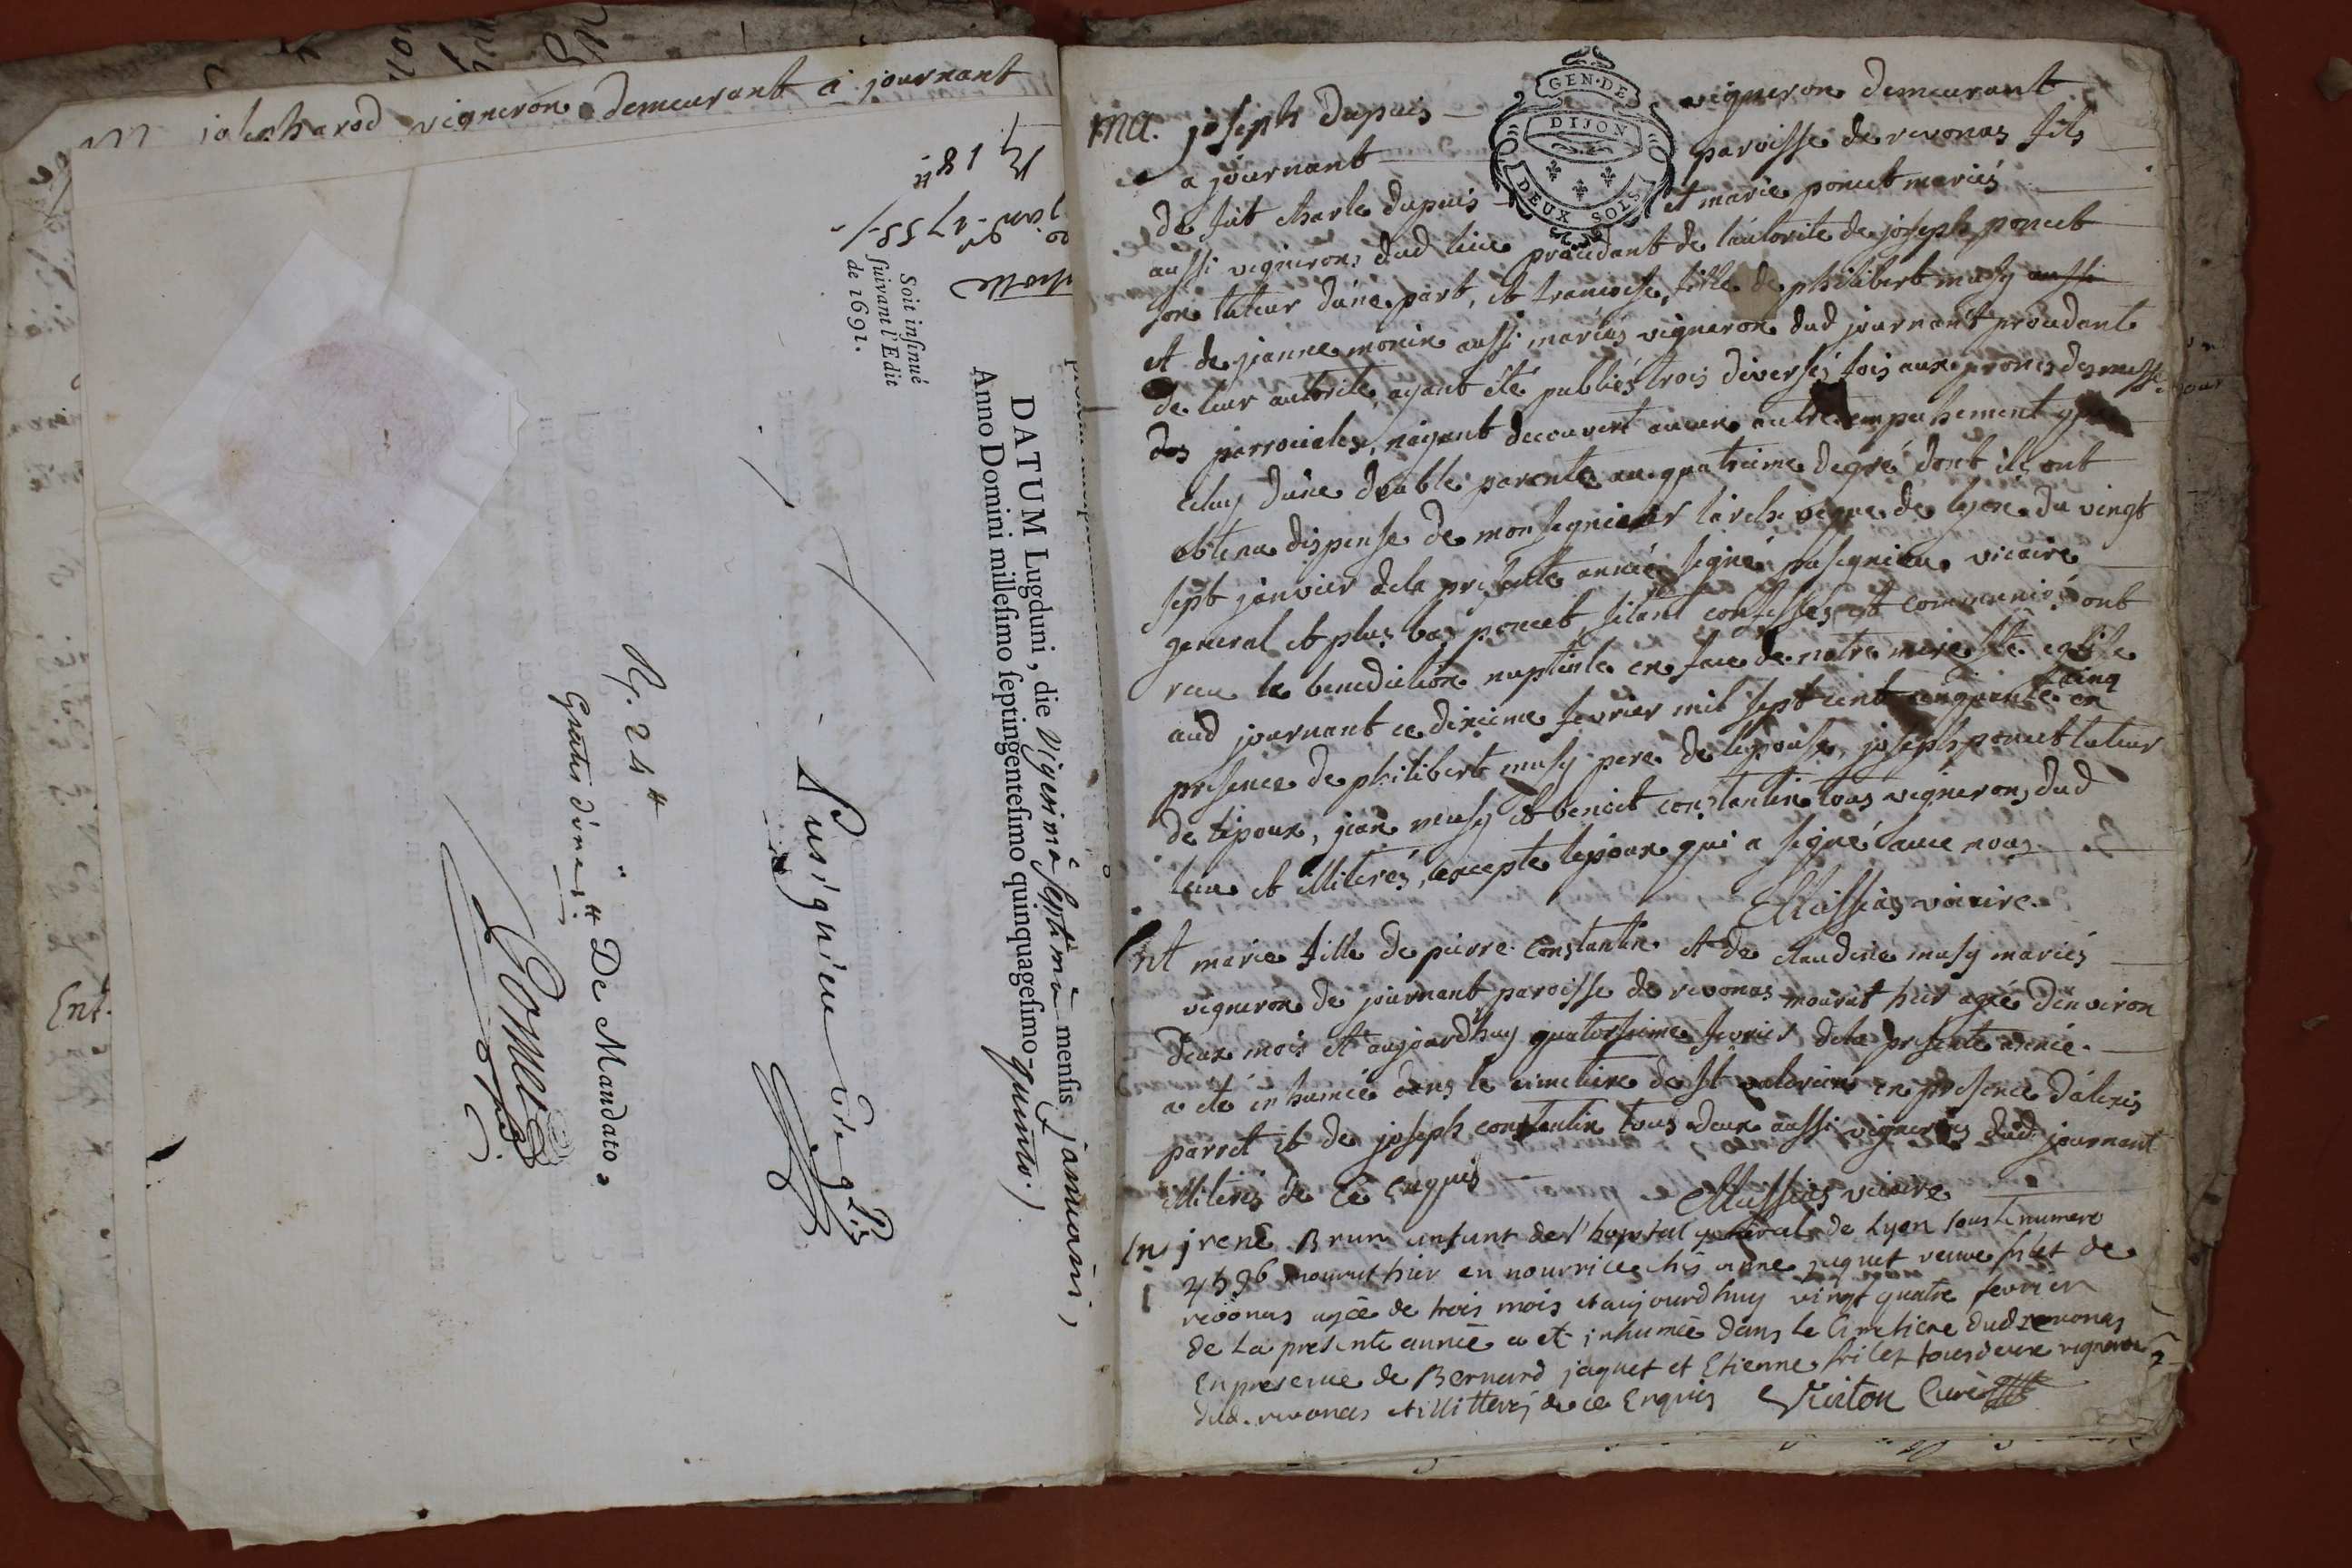 joseph arod vigneron demeurant a journant
Soit insinué
suivant l'Edit
de 1691.
DATUM Lugduni, die vigesimâ septimâ mensis januarii,
Anno Domini millesimo septingentesimo quinquagesimo-quinto.
Navarre
De Mandato.
Gratis
Ent.
ma. joseph Dupuis vigneron demeurant
a journant paroisse de revonas fils
de fut charle dupuis et marie poncet mariés
aussi vignerons dud lieu procedant de l'autorité de joseph poncet
son tuteur d'une part, et francoise, fille de philibert musy aussi
et de jeanne monin aussi mariés vigneron dud journant procedante
de leur autorité, ayant été publiés trois diverses fois aux prones des messes
des parrociales, n'ayant decouvert aucun autre empechement que
celuy d'une double parenté au quatrieme degré dont ils ont
obtenu dispense de monseigneur l'archeveque de lyon du vingt
sept janvier de la presente année signé pusignieu vicaire
general et plus bas poncet, s'étant confessés et communiés ont
recu la benediction nuptiale en face de notre mere ste eglise
cinq
aud journant ce dixieme fevrier mil sept cent cinquante en
presence de philibert musy pere de l'epouse, joseph poncet tuteur
de l'epoux, jean musy et benoit constantin tous vignerons dud
lieu et illiterés, excepte l'epoux qui a signé avec nous
Massias vicaire.
Ent marie fille de pierre constantin et de claudine musy mariés
vigneron de journant paroisse de revonas mourut hier agée d'environ
deux mois et aujourd'huy quatorsieme fevrier de la presente année
a été inhumée dans le cimetiere de st valerien en presence d'alexis
parret et de joseph constantin tous deux aussi vignerons dud journant
illiterés de ce enquis
Massias vicaire
En jrené Brun enfant de l'hopital general de Lyon sous le numero
2596 mourut hier en nourrice chés anne jaquet veuve frilet de
revonas agée de trois mois et aujourdhuy vingt quatre fevrier
de La presente année a eté inhumée dans le Cimetiere dud revonas
En presence de Bernard jaquet et Etienne frilet tous deux vignerons
dud. revonas et illitterés de ce Enquis Vuiton Curé